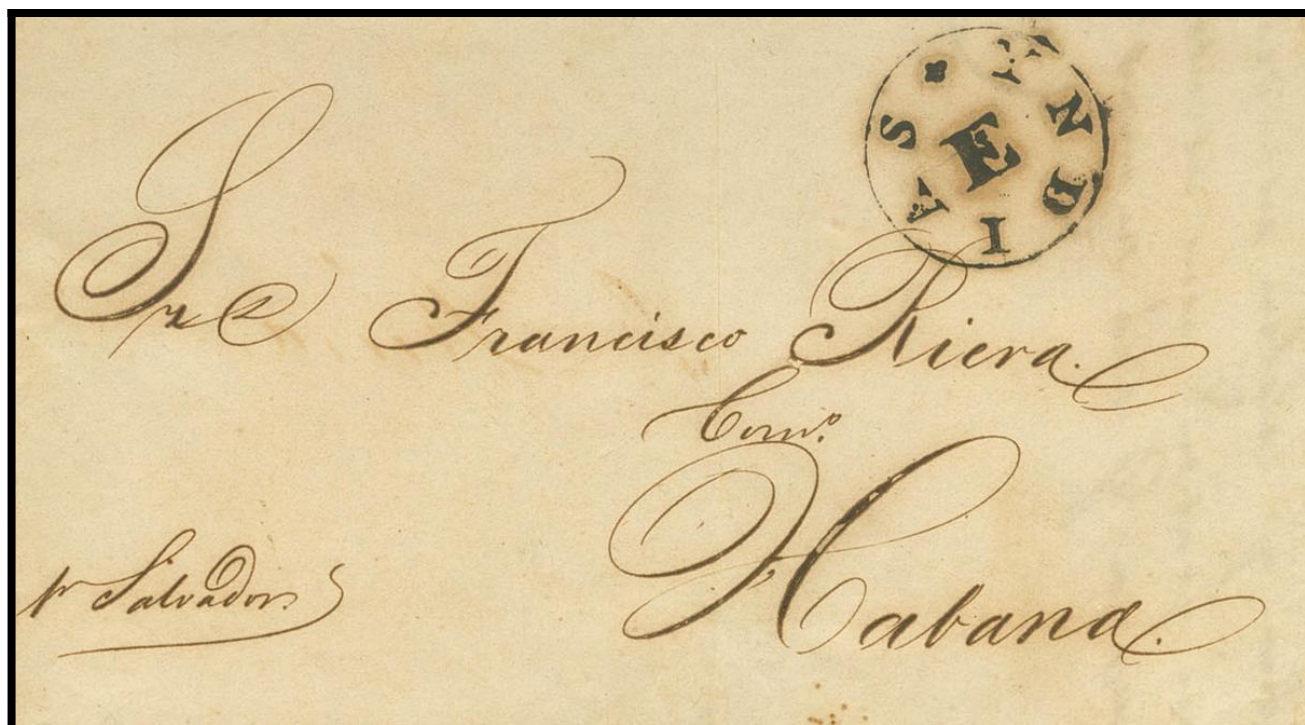 YNDIAS
E
Sr D Francisco Riera.
Com.º
Habana.
pr Salvador.